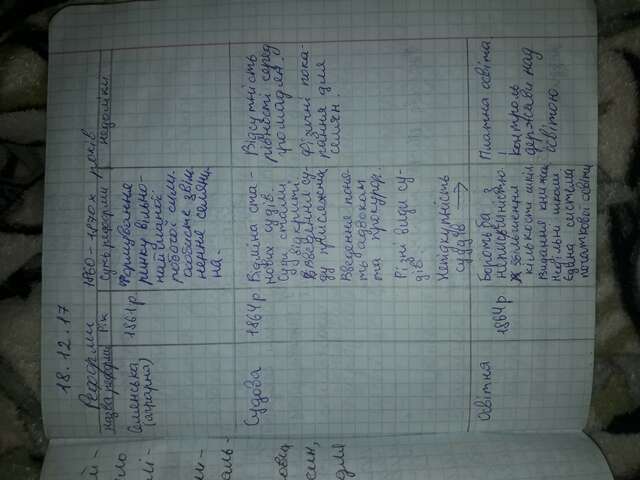 18.12.17
Реформи 1860-1870х років
назва реформи Рік Суть реформи недоліки
Селянська
(аграрна)
1861р
Формування
ринку вільно-
найманої
робочої сили.
особисте звіль-
нення селяни-
на.
Судова
1864р
Відміна ста-
нових судів.
Суди стали
відкриті
Введення су-
ду присяжних
Введення поня-
ть адвоката
та прокурор.
Різні види су-
дів.
Незмінність
суддів →
Відсутність
рівності серед
громадян.
Фізичні пока-
рання для
селян.
Освітня
1864р
Боротьба з
неписьменністю
збільшення
кількості шкіл
Недільні школи
Єдина система
початкової освіти
Платна освіта.
контроль
держави над
освітою